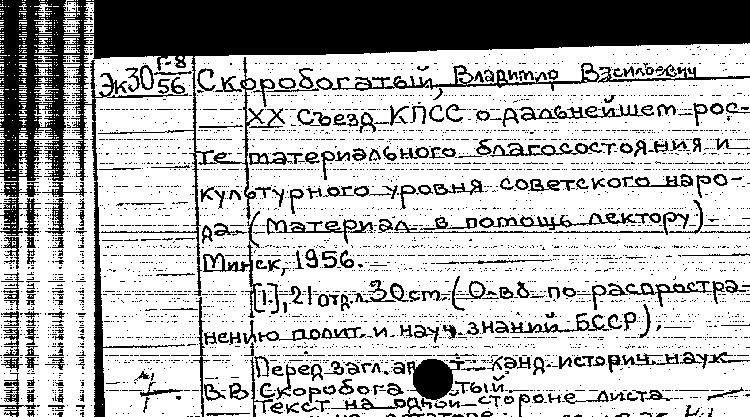 Эк30 Г-8/56 Скоробогатый, Владимир Васильевич
XX съезд КПСС о дальнейшем рос-
те материального благосостояния и
культурного уровня советского наро-
да. (Материал в помощь лектору).
Минск, 1956.
[1], 21 отд.л. 30 см. (О-во по распростра-
нению полит. и науч. знаний БССР).
Перед загл. канд. историч. наук
В.В. Скоробога тый.
Текст на одной стороне листа.